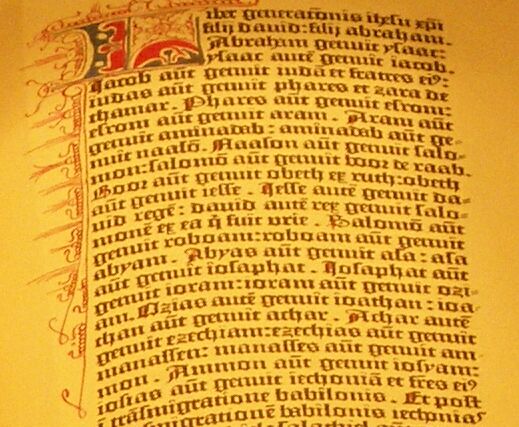 Liber generatōnis ihesu xpi
filij dauid: filij abraham.
Abraham genuit ysaac:
ysaac autē genuit iacob.
Iacob aūt genuit iudā et fratres eiꝰ:
iudas aūt genuit phares et zara de
thamar. Phares aūt genuit esrom:
esrom aūt genuit aram. Aram aūt
genuit aminadab: aminadab aūt ge=
nuit naasō. Naason aūt genuit salo=
mon: salomō aūt genuit booz de raab.
Booz aūt genuit obeth ex ruth: obeth
aūt genuit iesse. Iesse autē genuit da=
uid regē: dauid autē rex genuit salo=
monē ex ea q̄ fuit vrie. Salomō aūt
genuit roboam: roboam aūt genuit
abyam. Abyas aūt genuit asa: asa
aūt genuit iosaphat. Iosaphat aūt
genuit ioram: ioram aūt genuit ozi=
am. Ozias autē genuit ioathan: ioa=
than aūt genuit achaz. Achaz autē
genuit ezechiam: ezechias aūt genuit
manassen: manasses aūt genuit am
mon. Ammon aūt genuit iosyam:
iosias aūt genuit iechoniā et frēs eiꝰ
ī trāsmigratione babilonis. Et post
trāsmigrationē babilonis iechonias